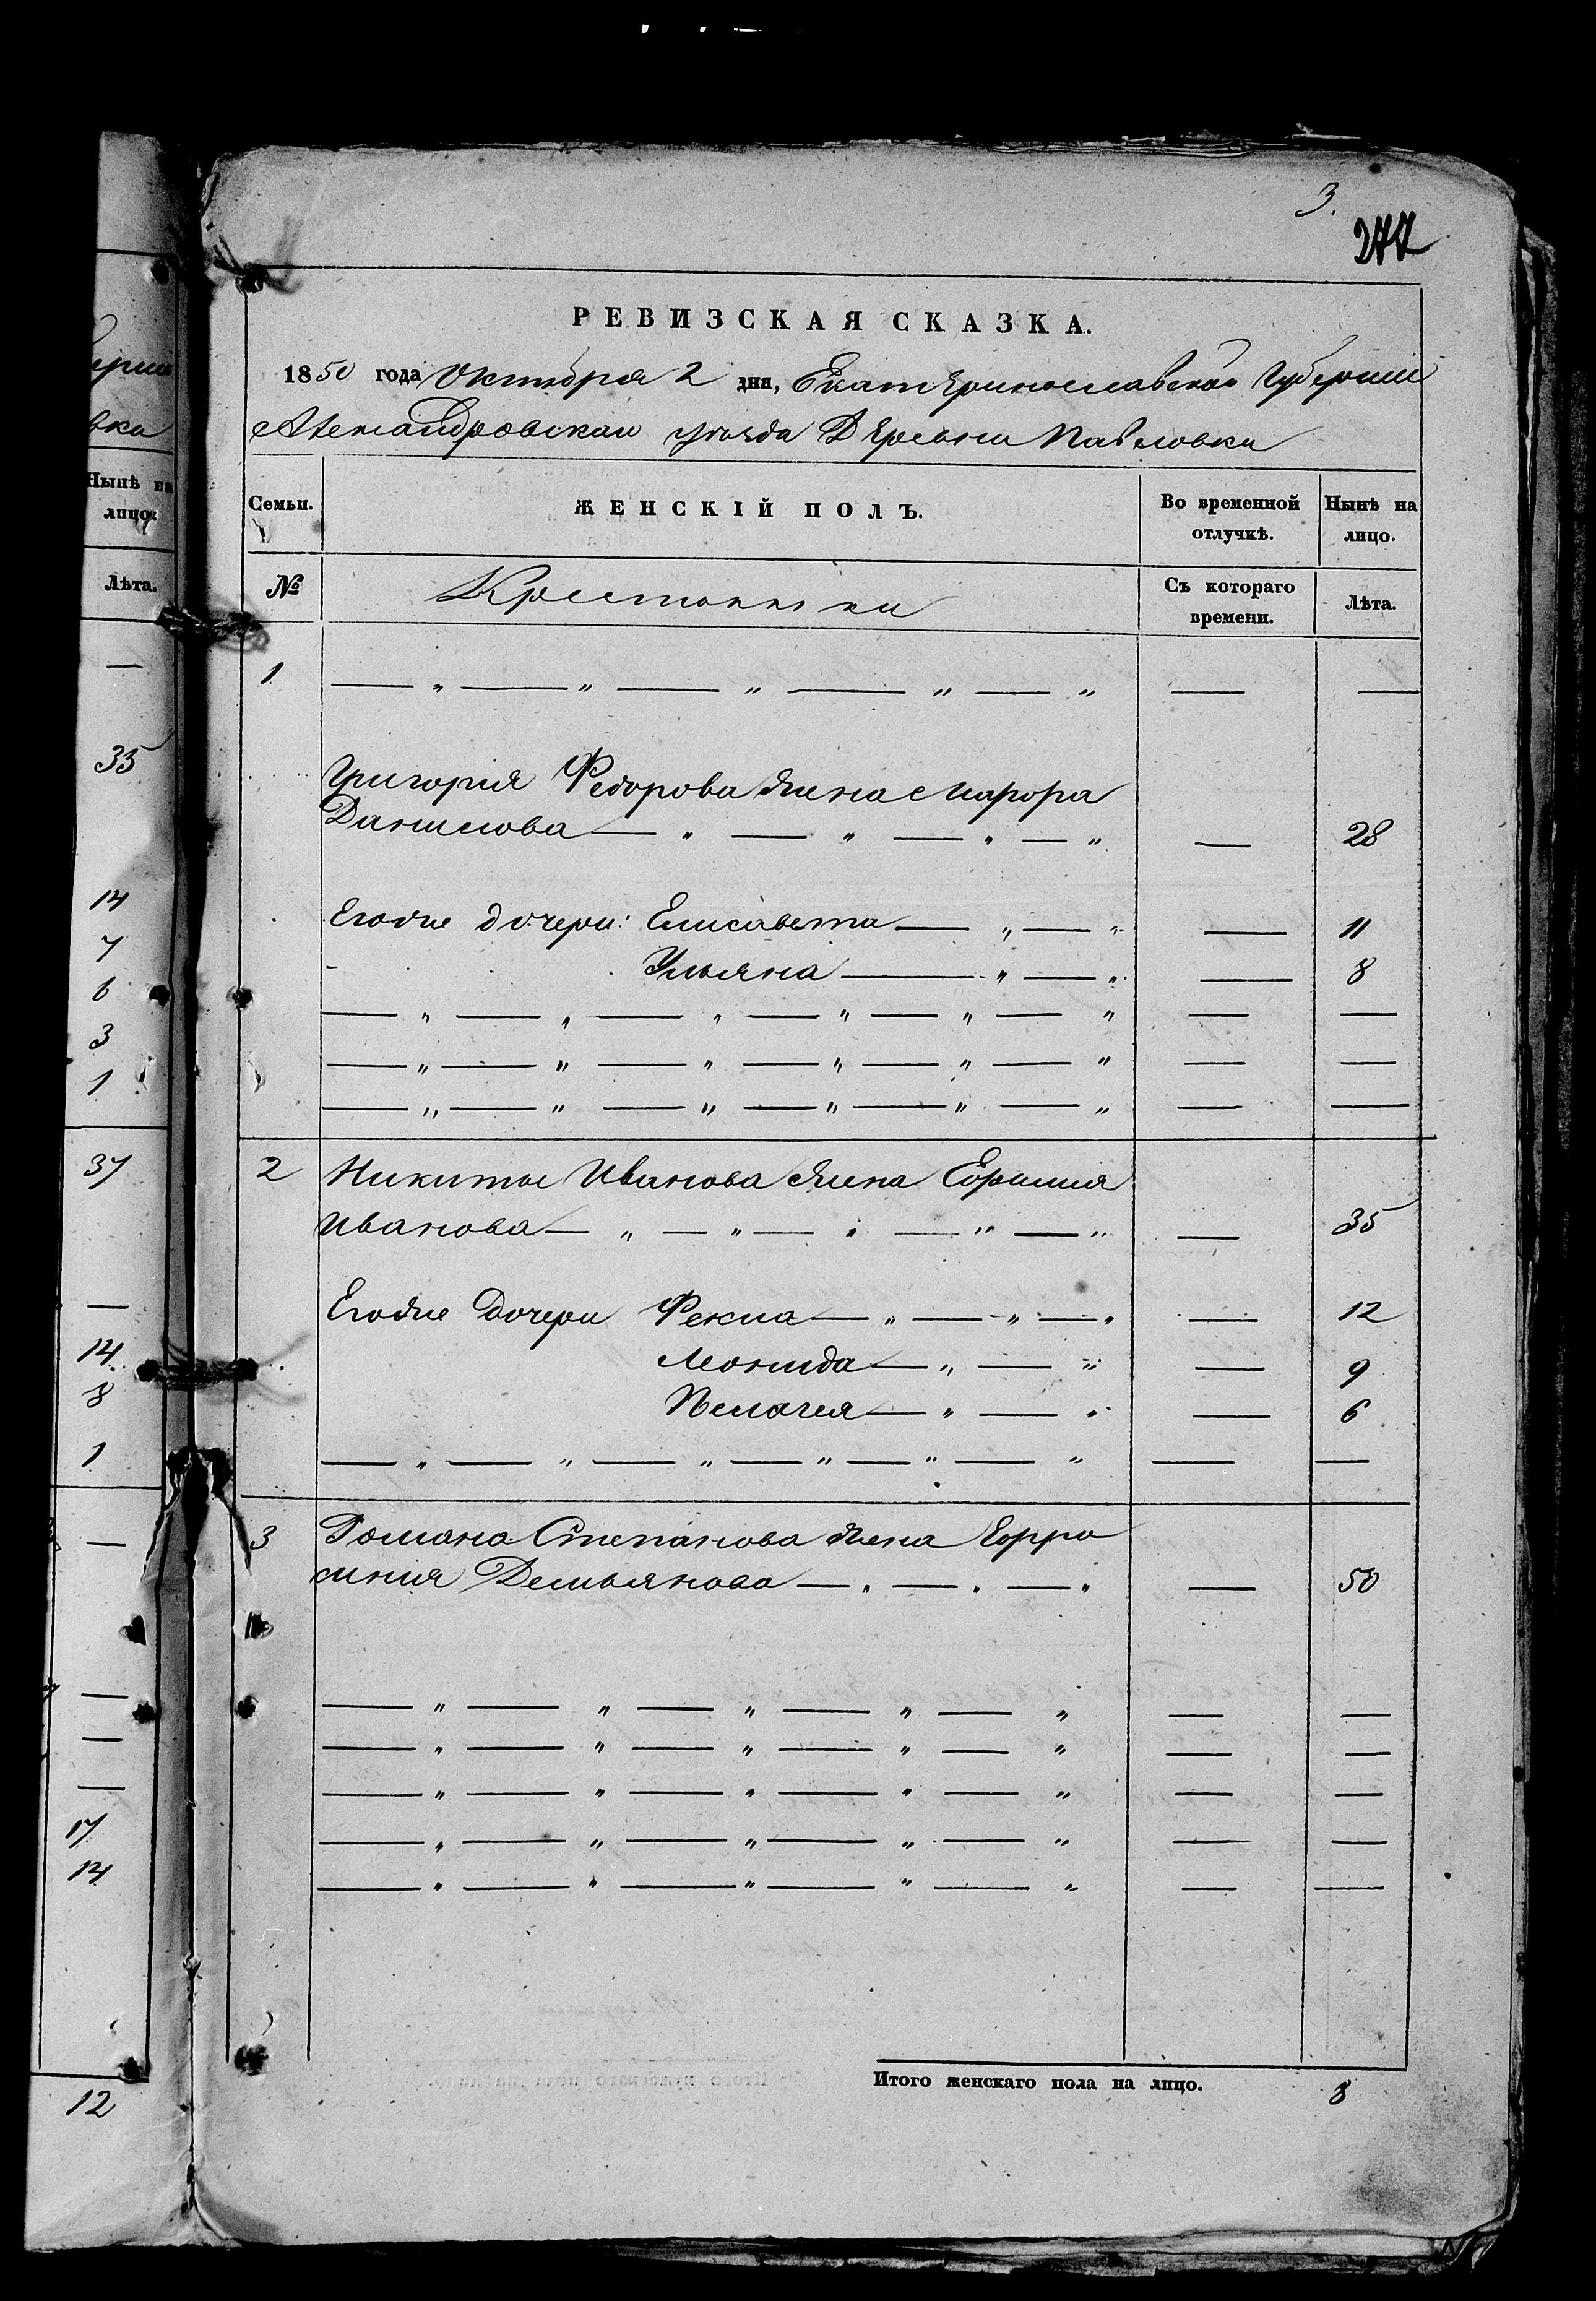 3.
277
РЕВИЗСКАЯ СКАЗКА.
1850 года Октября 2 дня, Екатеринославской Губернии
Александровскаго уѣзда Деревни Павловки
Семьи.
ЖЕНСКІЙ ПОЛЪ.
Во временной отлучкѣ.
Нынѣ на лицо.
№
Крестьянки
Съ котораго времени.
Лѣта.
1 — „ — „ — „ — „ — „ — —
Григорія Федорова жена Марфа
Данилова — „ — „ — „ — „ — 28
Егоже дочери: Елисавета — „ — „ — 11
Ульяна — „ — „ — 8
— „ — „ — „ — „ — „ — „ — —
— „ — „ — „ — „ — „ — „ — —
— „ — „ — „ — „ — „ — „ — —
2 Никиты Иванова жена Ефимия
Иванова — „ — „ — „ — „ — „ — 35
Егоже Дочери Фекла — „ — „ — „ — 12
Леонида — „ — „ — 9
Пелагея — „ — „ — 6
— „ — „ — „ — „ — „ — „ — —
3 Романа Степанова жена Ефро
синия Демьянова — „ — „ — „ — 50
— „ — „ — „ — „ — „ — —
— „ — „ — „ — „ — „ — —
— „ — „ — „ — „ — „ — —
— „ — „ — „ — „ — „ — —
— „ — „ — „ — „ — „ — —
Итого женскаго пола на лицо. 8
вка
Нынѣ на
лицо.
Лѣта.
—
35
14
7
6
3
1
37
—
14
8
1
—
—
—
—
17
14
12